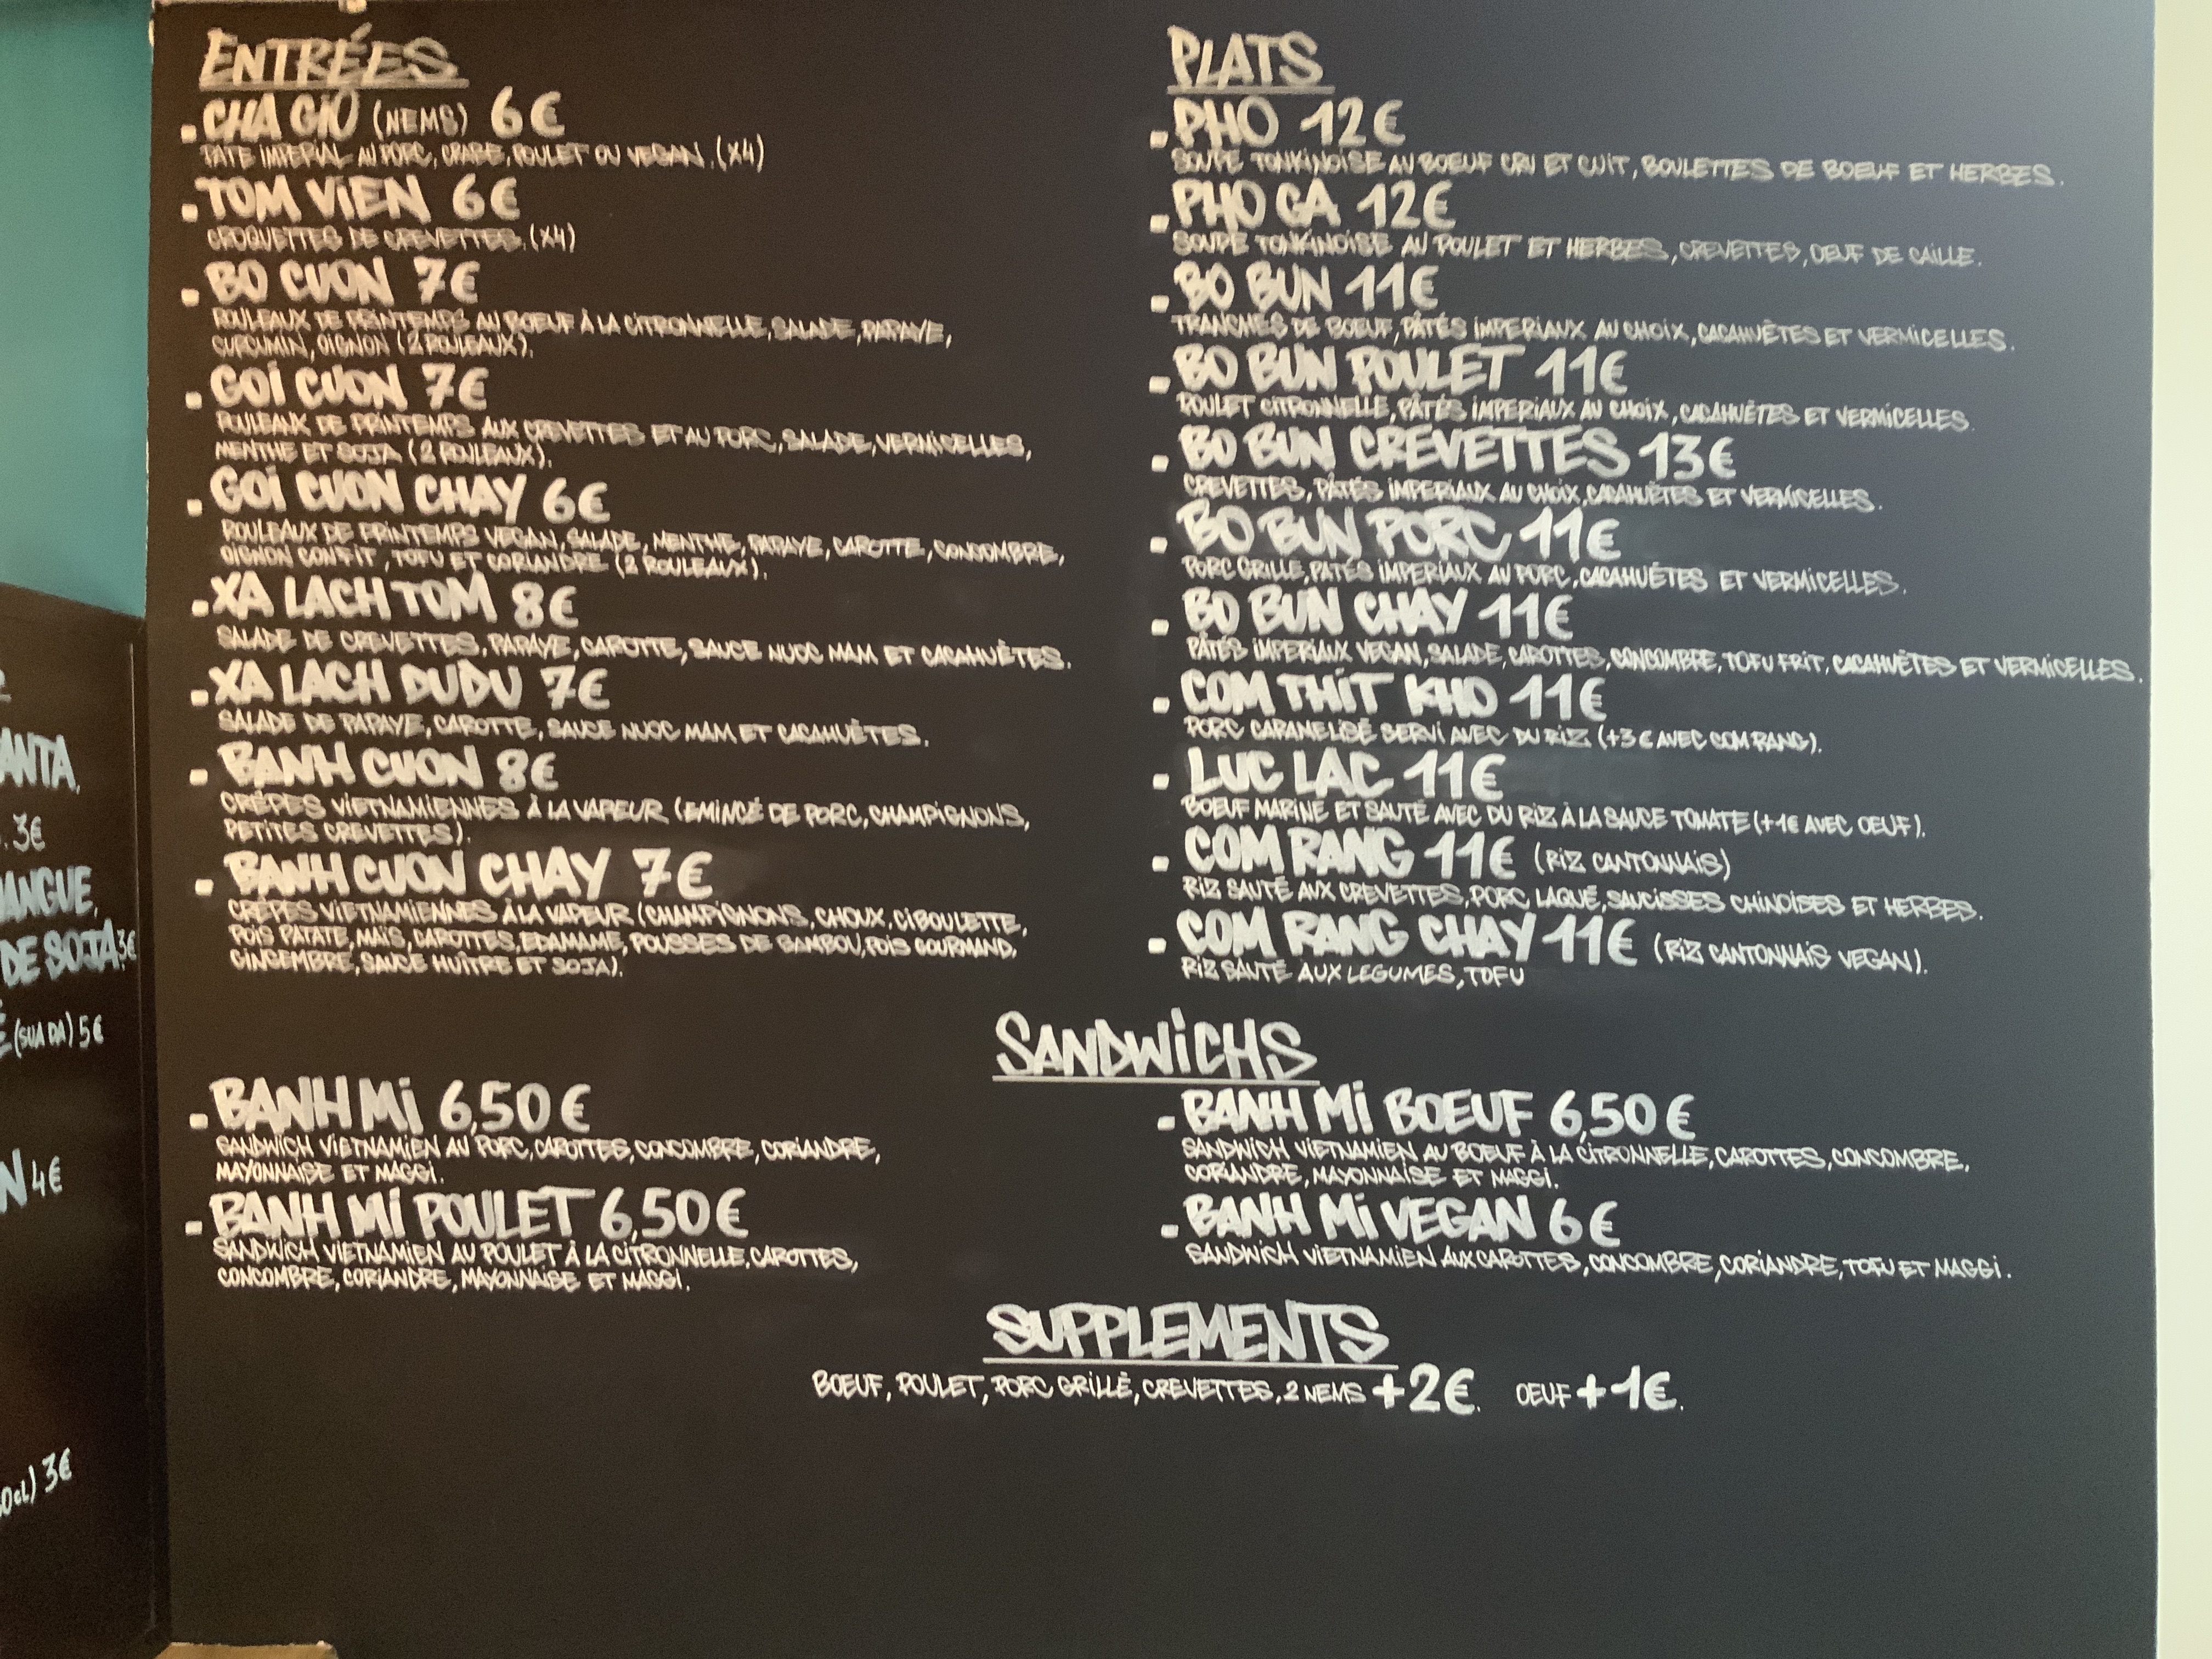 ENTRÉES
. CHA GIO (NEMS) 6€
PATE IMPERIAL AU PORC, CRABE, POULET OU VEGAN. (X4)
. TOM VIEN 6€
CROQUETTES DE CREVETTES. (X4)
. BO CUON 7€
ROULEAUX DE PRINTEMPS AU BOEUF À LA CITRONNELLE, SALADE, PAPAYE,
CURCUMIN, OIGNON (2 ROULEAUX).
. GOI CUON 7€
ROULEAUX DE PRINTEMPS AUX CREVETTES ET AU PORC, SALADE, VERMICELLES,
MENTHE ET SOJA (2 ROULEAUX).
. GOI CUON CHAY 6€
ROULEAUX DE PRINTEMPS VEGAN, SALADE, MENTHE, PAPAYE, CAROTTE, CONCOMBRE,
OIGNON CONFIT, TOFU ET CORIANDRE (2 ROULEAUX).
. XA LACH TOM 8€
SALADE DE CREVETTES, PAPAYE, CAROTTE, SAUCE NUOC MAM ET CACAHUÈTES.
. XA LACH DUDU 7€
SALADE DE PAPAYE, CAROTTE, SAUCE NUOC MAM ET CACAHUÈTES.
. BANH CUON 8€
CRÊPES VIETNAMIENNES À LA VAPEUR (EMINCÉ DE PORC, CHAMPIGNONS,
PETITES CREVETTES).
. BANH CUON CHAY 7€
CRÊPES VIETNAMIENNES À LA VAPEUR (CHAMPIGNONS, CHOUX, CIBOULETTE,
POIS PATATE, MAÏS, CAROTTES, EDAMAME, POUSSES DE BAMBOU, POIS GOURMAND,
GINGEMBRE, SAUCE HUÎTRE ET SOJA).
PLATS
. PHO 12€
SOUPE TONKINOISE AU BOEUF CRU ET CUIT, BOULETTES DE BOEUF ET HERBES.
. PHO GA 12€
SOUPE TONKINOISE AU POULET ET HERBES, CREVETTES, OEUF DE CAILLE.
. BO BUN 11€
TRANCHES DE BOEUF, PÂTÉS IMPERIAUX AU CHOIX, CACAHUÈTES ET VERMICELLES.
. BO BUN POULET 11€
POULET CITRONNELLE, PÂTÉS IMPERIAUX AU CHOIX, CACAHUÈTES ET VERMICELLES.
. BO BUN CREVETTES 13€
CREVETTES, PÂTÉS IMPERIAUX AU CHOIX, CACAHUÈTES ET VERMICELLES.
. BO BUN PORC 11€
PORC GRILLE, PATÉS IMPERIAUX AU PORC, CACAHUÉTES ET VERMICELLES.
. BO BUN CHAY 11€
PÂTÉS IMPERIAUX VEGAN, SALADE, CAROTTES, CONCOMBRE, TOFU FRIT, CACAHUÈTES ET VERMICELLES.
. COM THIT KHO 11€
PORC CARAMELISÉ SERVI AVEC DU RIZ (+3€ AVEC COM RANG).
. LUC LAC 11€
BOEUF MARINE ET SAUTÉ AVEC DU RIZ À LA SAUCE TOMATE (+1€ AVEC OEUF).
. COM RANG 11€ (RIZ CANTONNAIS)
RIZ SAUTÉ AUX CREVETTES, PORC LAQUÉ, SAUCISSES CHINOISES ET HERBES.
. COM RANG CHAY 11€ (RIZ CANTONNAIS VEGAN).
RIZ SAUTÉ AUX LEGUMES, TOFU
SANDWICHS
. BANH MI 6,50€
SANDWICH VIETNAMIEN AU PORC, CAROTTES, CONCOMBRE, CORIANDRE,
MAYONNAISE ET MAGGI.
. BANH MI POULET 6,50€
SANDWICH VIETNAMIEN AU POULET À LA CITRONNELLE, CAROTTES,
CONCOMBRE, CORIANDRE, MAYONNAISE ET MAGGI.
. BANH MI BOEUF 6,50€
SANDWICH VIETNAMIEN AU BOEUF À LA CITRONNELLE, CAROTTES, CONCOMBRE,
CORIANDRE, MAYONNAISE ET MAGGI.
. BANH MI VEGAN 6€
SANDWICH VIETNAMIEN AUX CAROTTES, CONCOMBRE, CORIANDRE, TOFU ET MAGGI.
SUPPLEMENTS
BOEUF, POULET, PORC GRILLÉ, CREVETTES, 2 NEMS +2€. OEUF +1€.
ANTA,
. 3€
ANGUE,
DE SOJA 3€
(SUA DA) 5€
N 4€
0cl) 3€